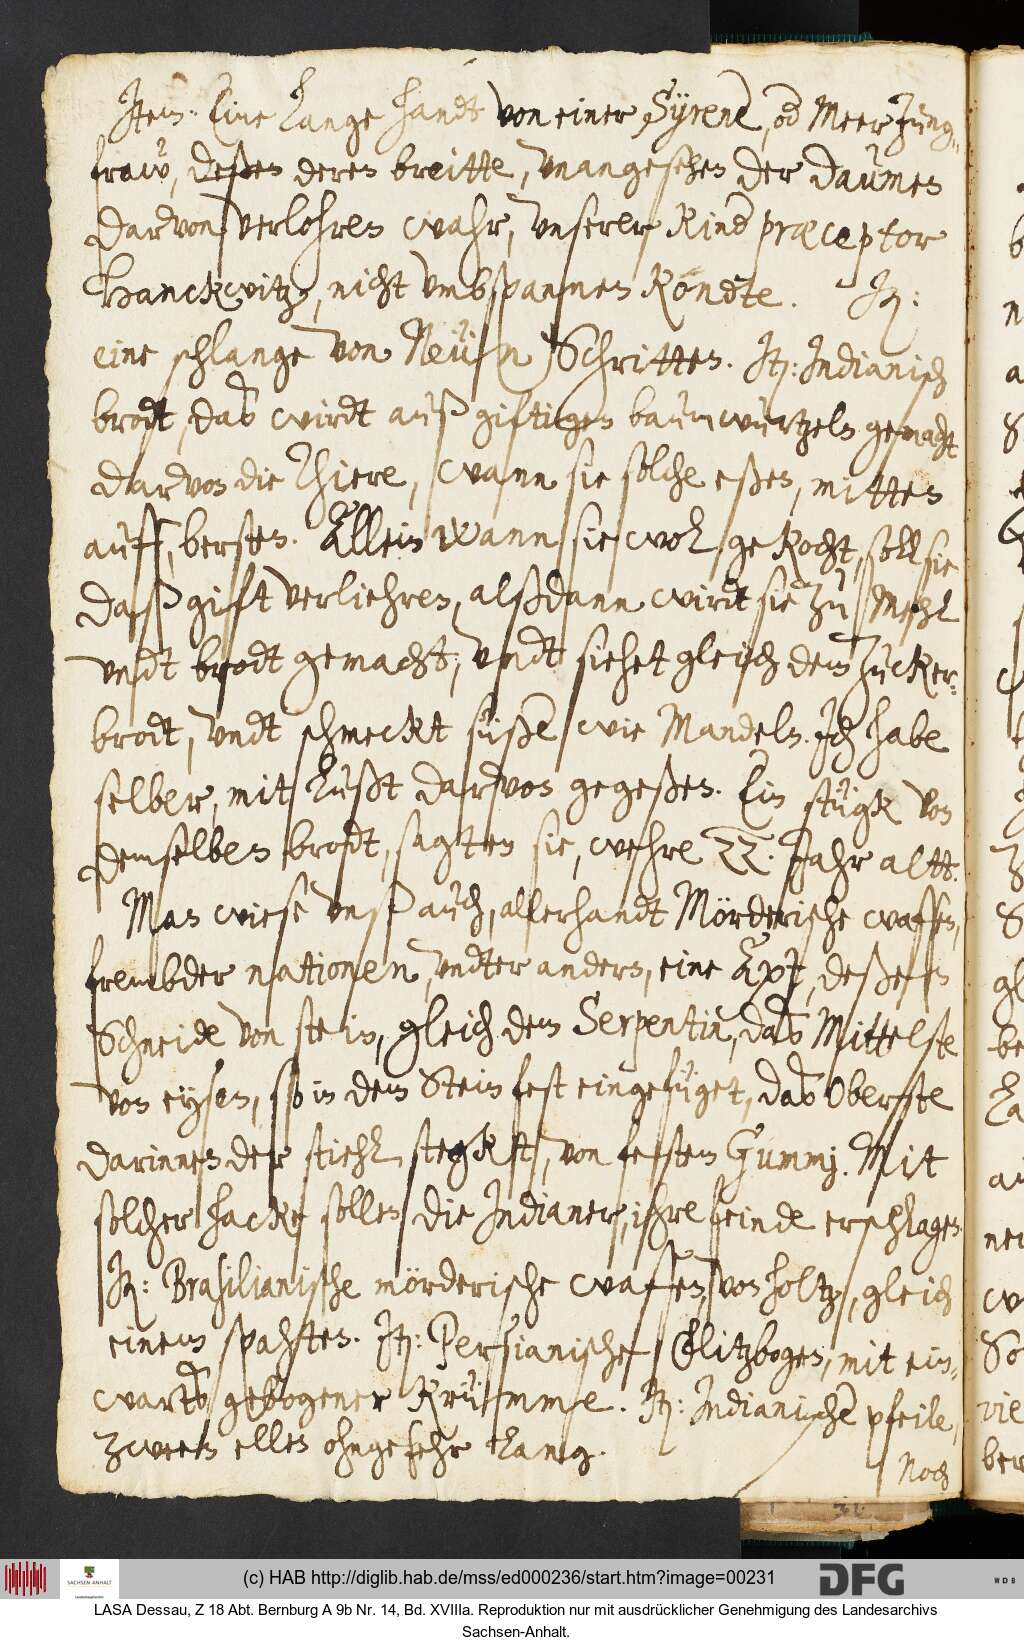 Item: Eine Lange handt von einer Syrene, od Meer Jung-
fraw, deßen deren breitte, vnangesehen der daumen
darvon verlohren wahr, vnserer Kind præceptor
Hanckwitz, nicht vmbspannen Köndte. It:
eine schlange von Neün Schritten. It: Indianisch
brodt, das wirdt auß giftigen baumwurtzeln gemacht
darvon die Thiere, wann sie solche eßen, mitten
auff, bersten. Allein wann sie wol gekocht, soll sie
daß gift verliehren, alßdann wirdt sie zu Mehl
vndt brodt gemacht, vndt siehet gleich dem Zucker-
brodt, vndt schmeckt süße wie Mandeln. Ich habe
selber, mit Lußt darvon gegeßen. Ein stügk von
demselben brodt, sagten sie, wehre 22. Jahr altt.
Man wiese vnß auch, allerhandt Mörderische waffen,
frembder nationen, vndter andern, eine Axt, deßen
Schneide von stein, gleich dem Serpentin, das Mittelste
von eysen, so in dem Stein fest eingefüget, das Oberste
darinnen der stiehl stegkt, von festem Gummj. Mit
solcher hacke sollen die Indianer, ihre feinde erschlagen.
It: Brasilianische mörderische waffen, von holtz, gleich
einem spahten. It: Persianische Flitzbogen, mit ein-
warts gebogener Krümme. It: Indianische pfeile,
zween ellen ohngefehr Lang.
Noch
(c) HAB http://diglib.hab.de/mss/ed000236/start.htm?image=00231
SACHSEN-ANHALT
DFG
WDB
LASA Dessau, Z 18 Abt. Bernburg A 9b Nr. 14, Bd. XVIIIa. Reproduktion nur mit ausdrücklicher Genehmigung des Landesarchivs
Sachsen-Anhalt.